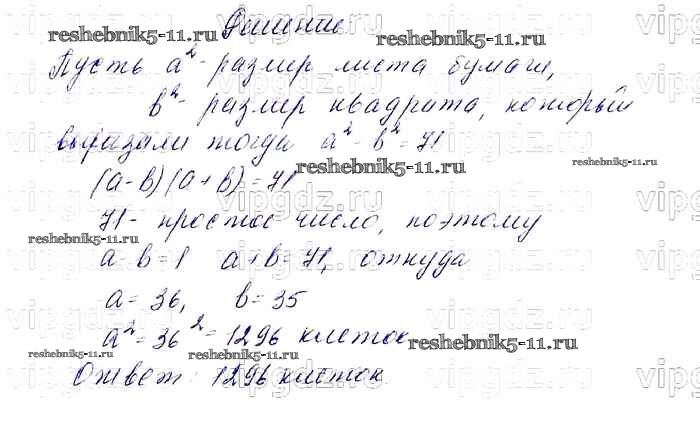 Решение
Пусть a² - размер листа бумаги,
b² - размер квадрата, который
вырезали тогда a² - b² = 71
(a-b)(a+b) = 71
71 - простое число, поэтому
a-b=1 a+b=71, откуда
a = 36, b = 35
a² = 36² = 1296 клеток
Ответ: 1296 клеток.
reshebnik5-11.ru
reshebnik5-11.ru
reshebnik5-11.ru
reshebnik5-11.ru
reshebnik5-11.ru
reshebnik5-11.ru
reshebnik5-11.ru
vipgdz.ru